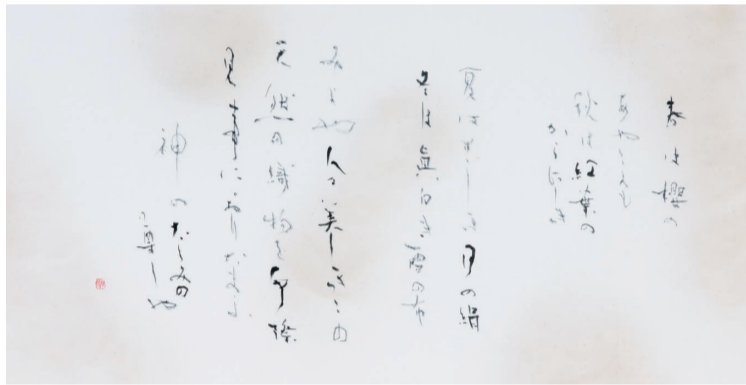 春は櫻の
あやころも
秋は紅葉の
からにしき
夏はすゞしき月の絹
冬は眞白き雪の布
みよや人々美しきこの
天然の織物を手際
見事におりたもう
神のたくみの
尊しや